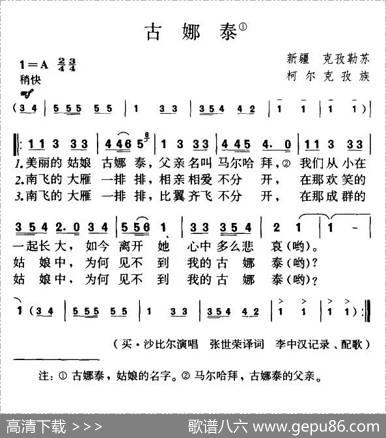 古娜泰①
1=A 2/4 3/4
新疆 克孜勒苏
稍快
柯尔克孜族
mf
(3 4 | 5 5 5 5 5 | 1 0 3 3 | 3 5 4 4 2 | 1 0 1 0)
1 1 3 3 3 | 4 4 6 5 | 1 1 3 3 3 | 4 4 5 4. 0 | 1 1 3 3 3
1.美丽的姑娘 古娜泰，父亲名叫马尔哈 拜，② 我们从小在
2.南飞的大雁 一排排，相亲相爱不分 开， 在那欢笑的
3.南飞的大雁 一排排，比翼齐飞不分 开， 在那成群的
3 5 4 2. 0 3 4 | 5 5 6 1 | 3 5 4 4 2 | 1 - | 1 -
一起长大，如今 离开她 心中多么悲 哀(哟)。
姑 娘中，为何 见不到 我的古娜 泰(哟)？
姑 娘中，为何 见不到 我的古娜 泰(哟)？
1 (3 4 | 5 5 5 5 5 | 1 0 3 3 | 3 5 4 4 2 | 1 1 | 1 -)
(买·沙比尔演唱 张世荣译词 李中汉记录、配歌)
注：① 古娜泰，姑娘的名字。② 马尔哈拜，古娜泰的父亲。
高清下载 >>> 歌谱八六 www.gepu86.com